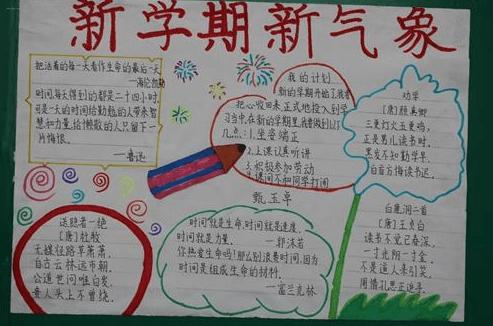 新学期新气象
把活着的每一天看作生命的最后一天
——海伦·凯勒
时间每天得到的都是二十四小时,
可是一天的时间给勤勉的人带来智
慧和力量,给懒散的人只留下一
片悔恨.
——鲁迅
我的计划
新的学期开始了,我要
把心收回来,正式地投入到学
习当中,在新的学期里,我要做到以下
几点:1.坐姿端正
2.上课认真听讲
3.积极参加劳动
4.课间不和同学打闹
甄玉卓
劝学
[唐]颜真卿
三更灯火五更鸡,
正是男儿读书时,
黑发不知勤学早,
白首方悔读书迟.
送隐者一绝
[唐]杜牧
无媒径路草萧萧,
自古云林远市朝,
公道世间唯白发,
贵人头上不曾饶.
时间就是生命,时间就是速度,
时间就是力量.
——郭沫若
你热爱生命吗?那么别浪费时间,因为
时间是组成生命的材料.
——富兰克林
白鹿洞二首
[唐]王贞白
读书不觉已春深,
一寸光阴一寸金,
不是道人来引笑,
周情孔思正追寻.